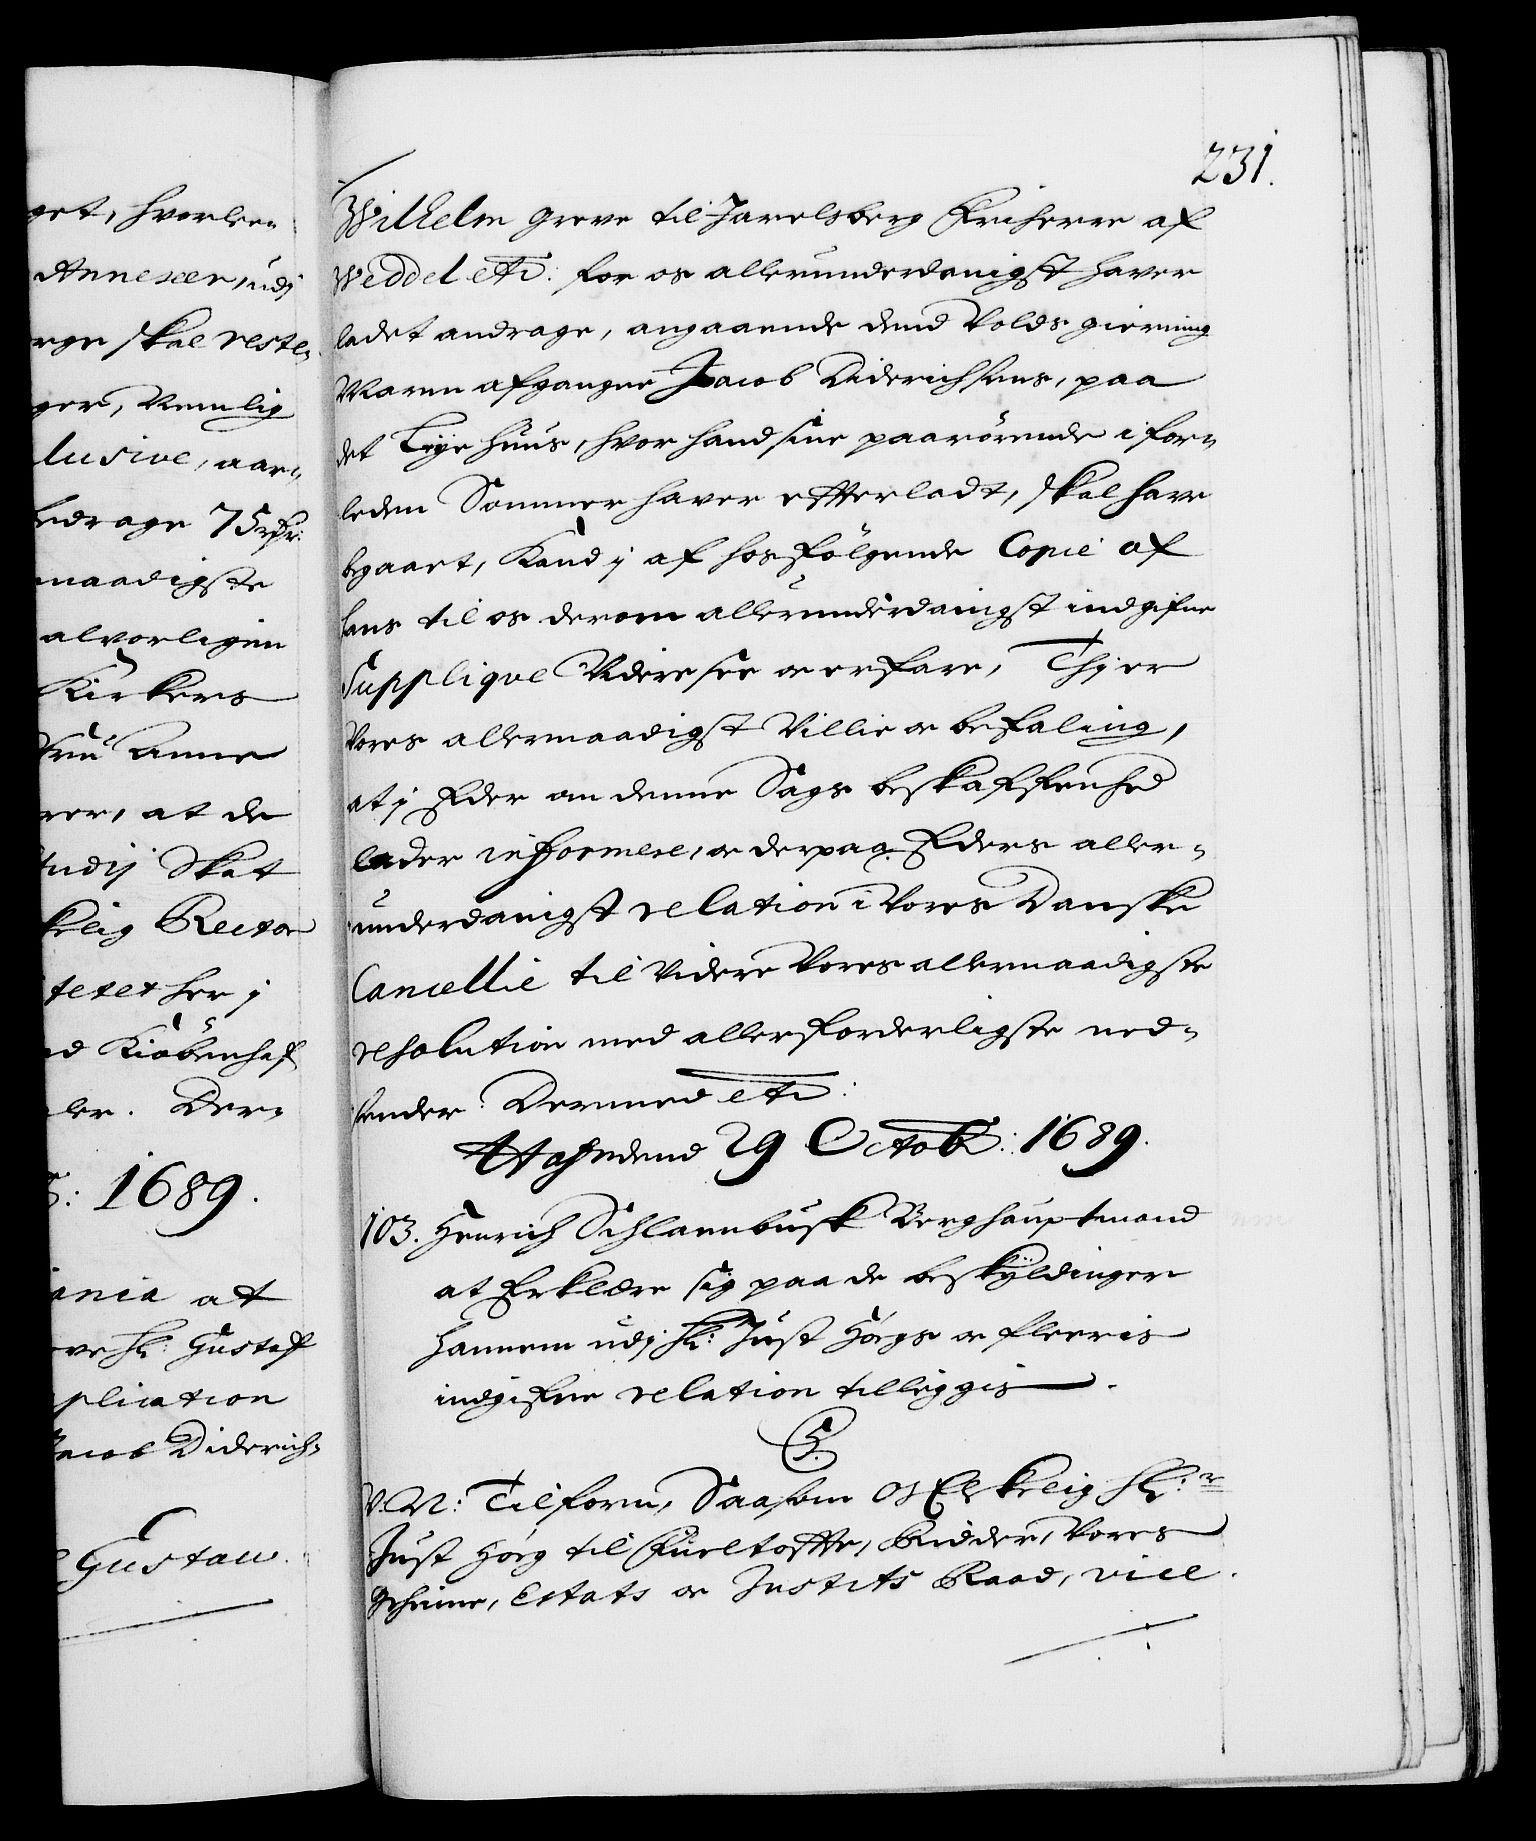 get, hvorle-
Annexer, udj
rge skal reste-
ger, Nemlig
lusive, aar-
bedrage 75 rdr:
naadigste
alvorligen
Kirkers
Fru Anne
rer, at de
Studij Skat
kelig Rector
tetet her j
ed Kiöbenhaf
ler. Der-
: 1689.
ania at
ve hr: Gustaf
plication
Jacob Diderich-
Gustau.
231.
Wilhelm Greve til Jarelsberg Friherre af
Weddel etc: for os allerunderdanigst haver
ladet andrage, angaaende dend Volds gierning
Maren afgangne Jacob Diderichsens, paa
det Leye huus, hvor hand sine paarörende i for-
leden Sommer haver efterladt, skal have
begaaet, Kand j af hosfölgende Copie af
hans til os derom allerunderdanigst indgifne
Supplique Videre see oc erfare, Thj er
Vores allernaadigst Villie oc befaling,
at j Eder om denne Sags beskaffenhed
lader informere, oc derpaa Eders aller-
underdanigst relation i Vores Danske
Cancellie til Videre Vores allernaadigste
resolution med allerforderligste ned-
sender. Dermed etc:
Hafn dend 29 Octob: 1689.
103. Henrich Schlanbusk Berghauptmand
at Erklære sig paa de beskyldinger
hannem udj hr: Just Högs oc fleeris
indgifne relation tilleggis.
C5.
V. N: Tilforn, Saasom Os Elskelig Hr:
Just Hög til Fueltofte, Ridder, Vores
Geheime, Estats oc Justits Raad, vice